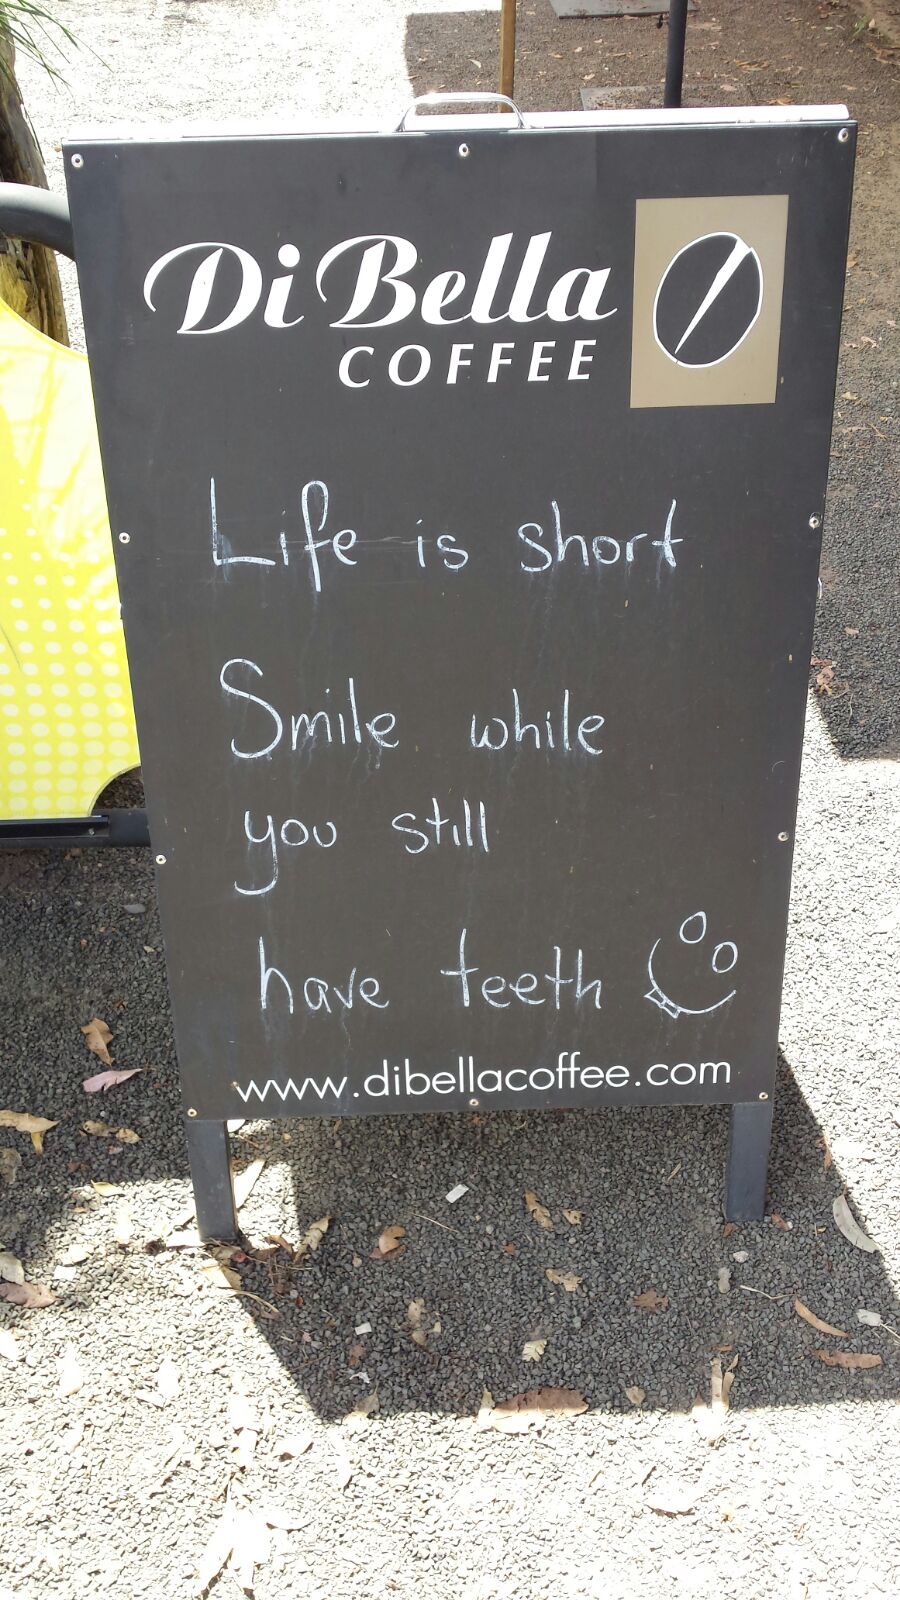 Di Bella
COFFEE
Life is short
Smile while
you still
have teeth
www.dibellacoffee.com